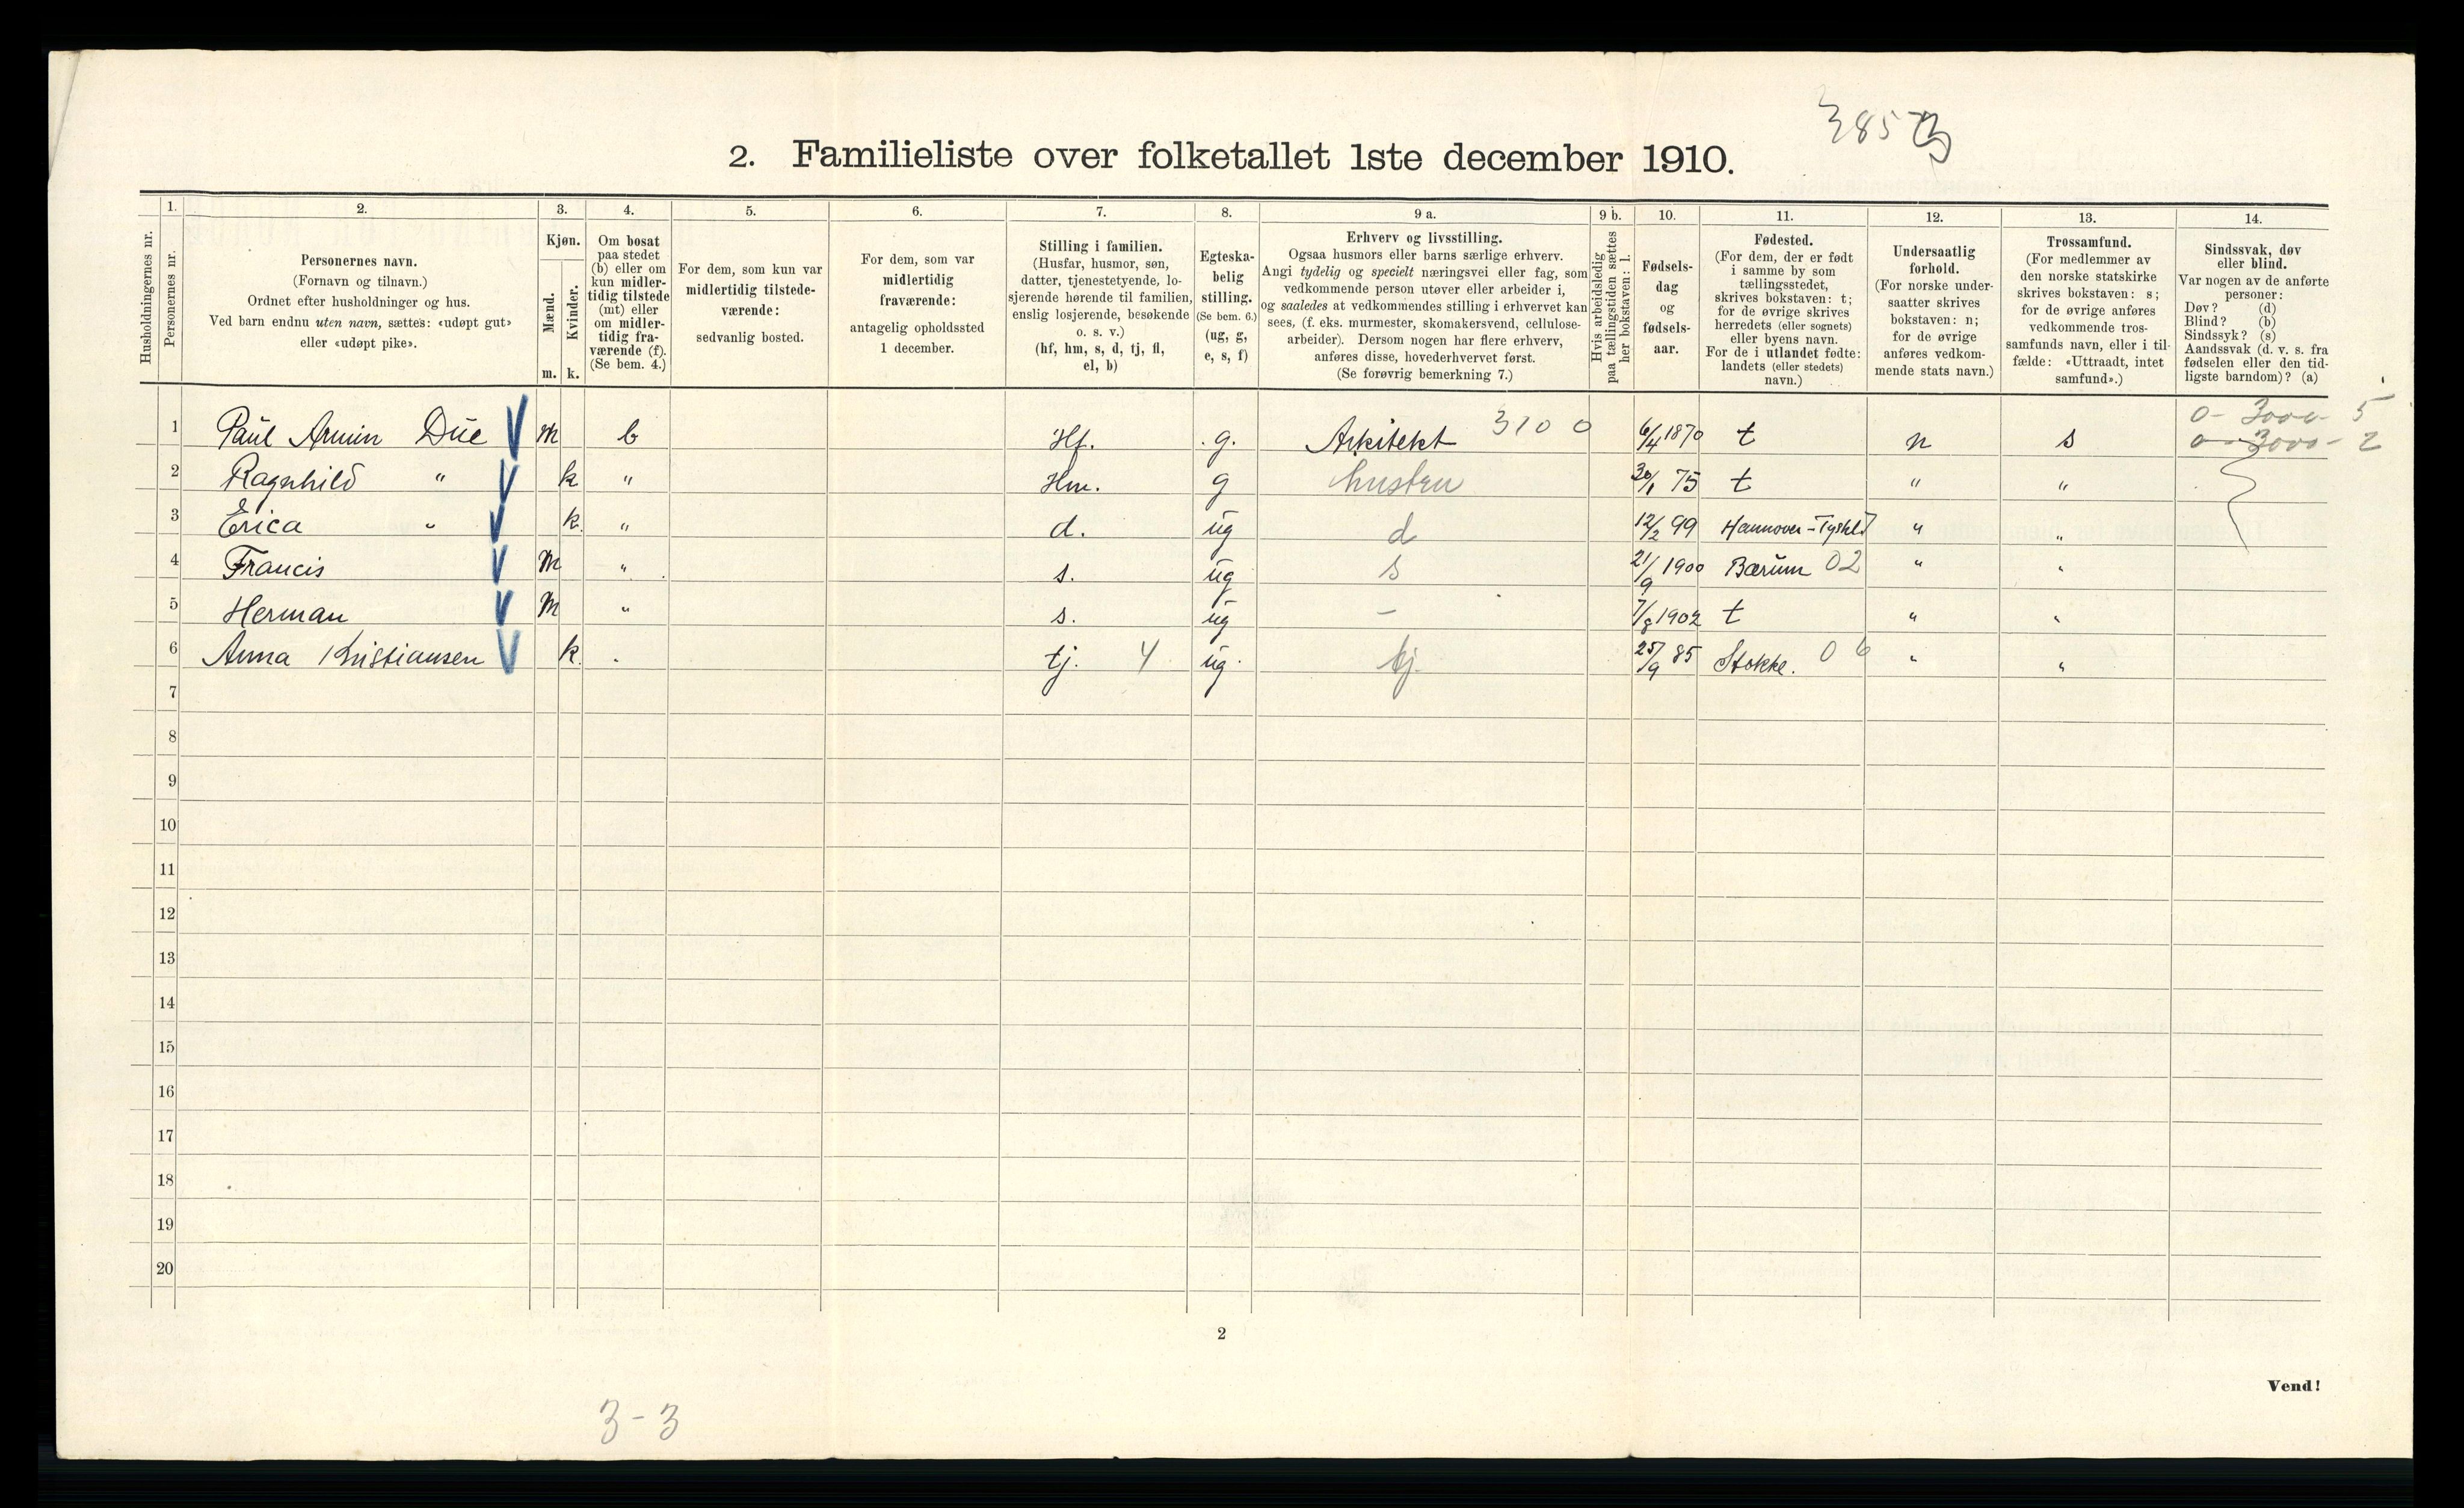 3857
2. Familieliste over folketallet 1ste december 1910.
Husholdningernes nr.
1.
Personernes nr.
2.
Personernes navn.
(Fornavn og tilnavn.)
Ordnet efter husholdninger og hus.
Ved barn endnu uten navn, sættes: «udøpt gut»
eller «udøpt pike».
3.
Kjøn.
Mænd.
Kvinder.
m.
k.
4.
Om bosat
paa stedet
(b) eller om
kun midler-
tidig tilstede
(mt) eller
om midler-
tidig fra-
værende (f).
(Se bem. 4.)
5.
For dem, som kun var
midlertidig tilstede-
værende:
sedvanlig bosted.
6.
For dem, som var
midlertidig
fraværende:
antagelig opholdssted
1 december.
7.
Stilling i familien.
(Husfar, husmor, søn,
datter, tjenestetyende, lo-
sjerende hørende til familien,
enslig losjerende, besøkende
o. s. v.)
(hf, hm, s, d, tj, fl,
el, b)
8.
Egteska-
belig
stilling.
(Se bem. 6.)
(ug, g,
e, s, f)
9 a.
Erhverv og livsstilling.
Ogsaa husmors eller barns særlige erhverv.
Angi tydelig og specielt næringsvei eller fag, som
vedkommende person utøver eller arbeider i,
og saaledes at vedkommendes stilling i erhvervet kan
sees, (f. eks. murmester, skomakersvend, cellulose-
arbeider). Dersom nogen har flere erhverv,
anføres disse, hovederhvervet først.
(Se forøvrig bemerkning 7.)
9 b.
Hvis arbeidsledig
paa tællingstiden sættes
her bokstaven: l.
10.
Fødsels-
dag
og
fødsels-
aar.
11.
Fødested.
(For dem, der er født
i samme by som
tællingsstedet,
skrives bokstaven: t;
for de øvrige skrives
herredets (eller sognets)
eller byens navn.
For de i utlandet fødte:
landets (eller stedets)
navn.)
12.
Undersaatlig
forhold.
(For norske under-
saatter skrives
bokstaven: n;
for de øvrige
anføres vedkom-
mende stats navn.)
13.
Trossamfund.
(For medlemmer av
den norske statskirke
skrives bokstaven: s;
for de øvrige anføres
vedkommende tros-
samfunds navn, eller i til-
fælde: «Uttraadt, intet
samfund».)
14.
Sindssvak, døv
eller blind.
Var nogen av de anførte
personer:
Døv? (d)
Blind? (b)
Sindssyk? (s)
Aandssvak (d. v. s. fra
fødselen eller den tid-
ligste barndom)? (a)
0- 3000- 5
1 Paul Armin Due m b Hf. g. Arkitekt 3100 6/4 1870 t n s 0-3000-2
2 Ragnhild " k " Hm. g hustru 30/1 75 t " "
3 Erica " k. " d. ug d 12/2 99 Hannover-Tyskld " "
4 Francis M " s. ug s 21/9 1900 Bærum 02 " "
5 Herman M " s. ug - 7/8 1902 t " "
6 Anna Kristiansen k. " tj. 4 ug. tj 25/9 85 Stokke. 06 " "
7
8
9
10
11
12
13
14
15
16
17
18
19
20
2
Vend!
3-3